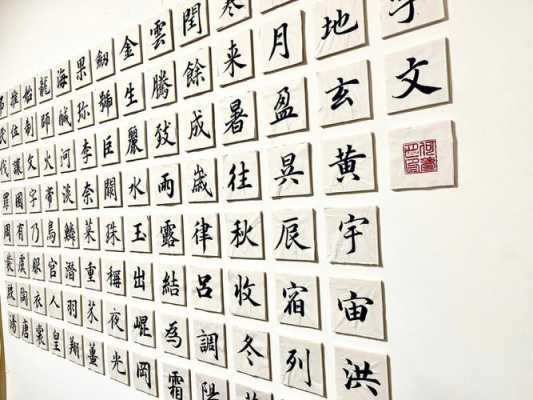 字文
地玄黄宇宙洪
月盈昃辰宿列
寒来暑往秋收冬
閏餘成歳律呂調陽
雲騰致雨露結為霜
金生麗水玉出崐岡
劔號巨闕珠稱夜光
果珎李奈菜重芥薑
海鹹河淡鱗潜羽翔
龍師火帝鳥官人皇
始制文字乃服衣裳
推位讓國有虞陶唐
民伐罪周發殷湯